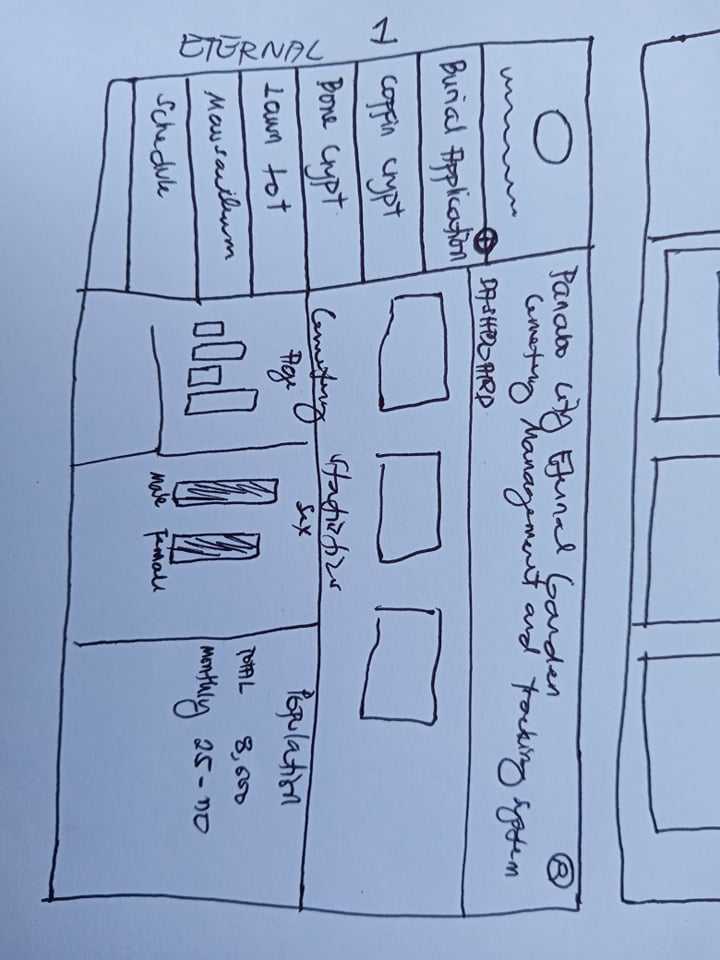 1
ETERNAL
Burial Application
Coffin Crypt
Bone Crypt
Lawn Lot
Mausoileum
Schedule
Panabo City Eternal Garden
Cemetery Management and tracking system
DASHBOARD
Cemetery Statistics
Age
Sex
Male
Female
Population
TOTAL 8,000
MONTHLY 25 -